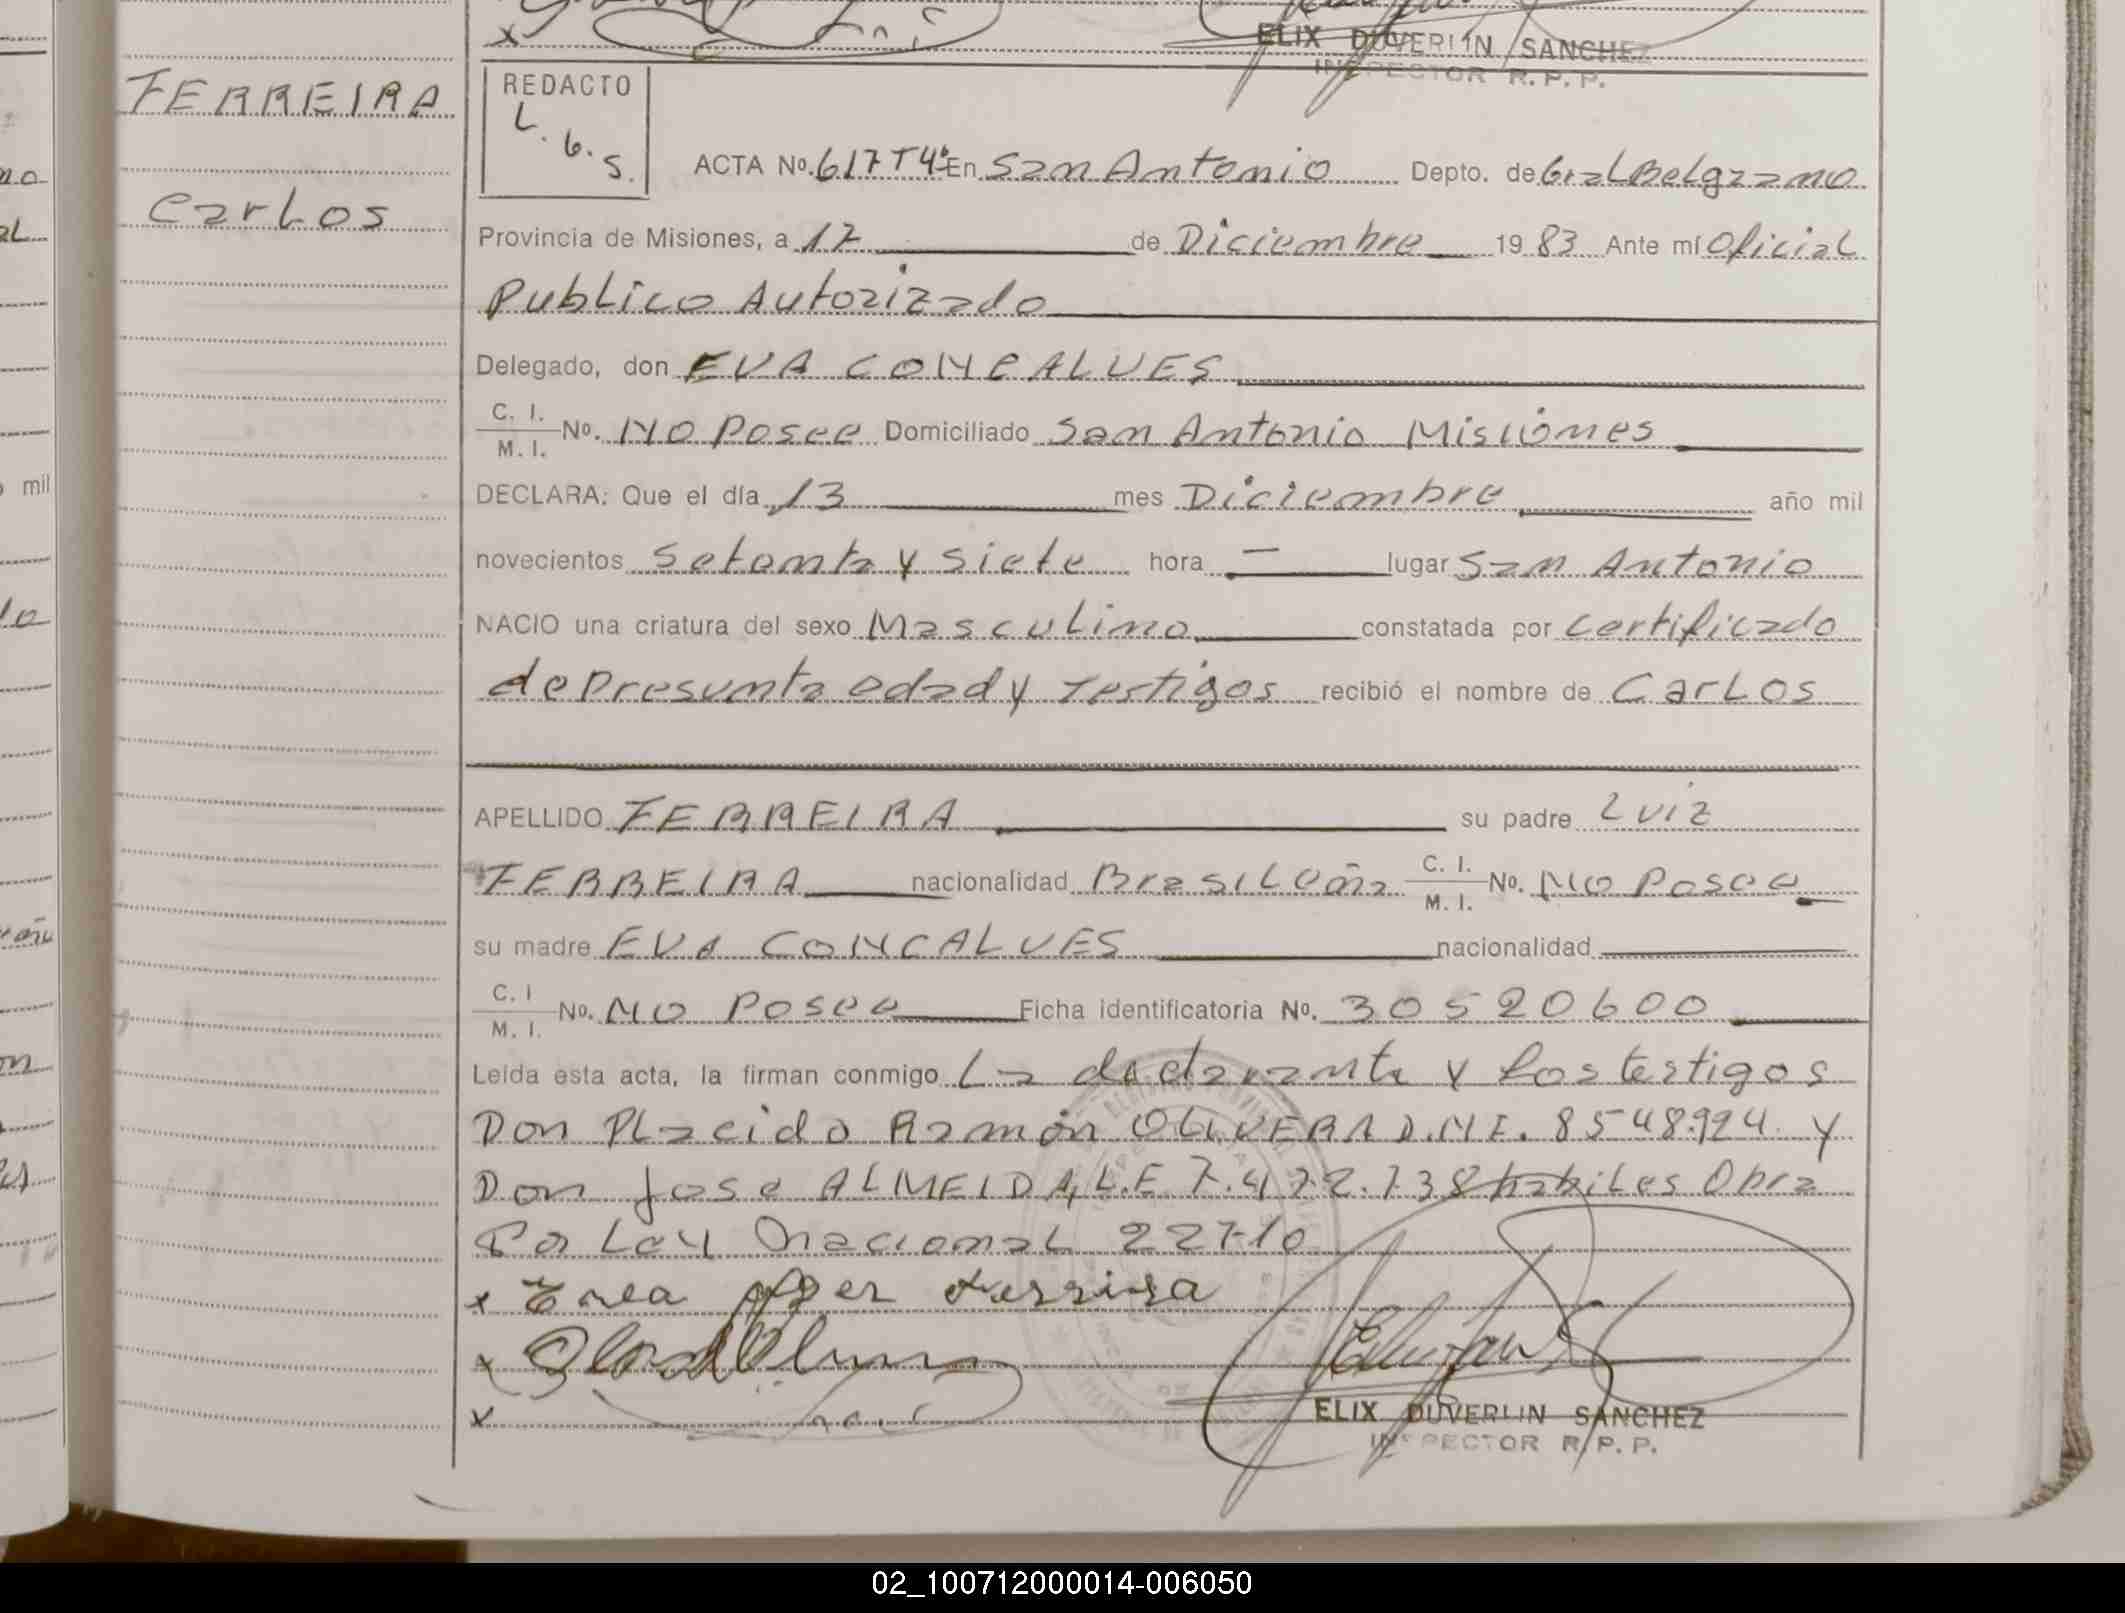 ELIX DUVERLIN SANCHEZ
INSPECTOR R. P. P.
FERREIRA
Carlos
REDACTO
L. G. S.
ACTA No. 617 T4º En San Antonio Depto. de Gral Belgrano
Provincia de Misiones, a 12 de Diciembre 19 83 Ante mí Oficial
Publico Autorizado
Delegado, don EVA CONCALVES
C. I. / M. I. No. No Posee Domiciliado San Antonio Misiones
DECLARA: Que el día 13 mes Diciembre año mil
novecientos Setenta y Siete hora — lugar San Antonio
NACIO una criatura del sexo Masculino constatada por Certificado
de Presunta edad y Testigos recibió el nombre de Carlos
APELLIDO FERREIRA su padre Luiz
FERREIRA nacionalidad Brasileña C. I. / M. I. No. No Posee
su madre EVA CONCALVES nacionalidad
C. I / M. I. No. No Posee Ficha identificatoria No. 30520600
Leída esta acta, la firman conmigo La declarante y los testigos
Don Placido Ramón OLIVERA D.N.I. 8548.924 y
Don Jose ALMEIDA, L.E 7.472.738 habiles Obra
Po Ley Nacional 22710
x
x
x
ELIX DUVERLIN SANCHEZ
INSPECTOR R. P. P.
mil
02_100712000014-006050